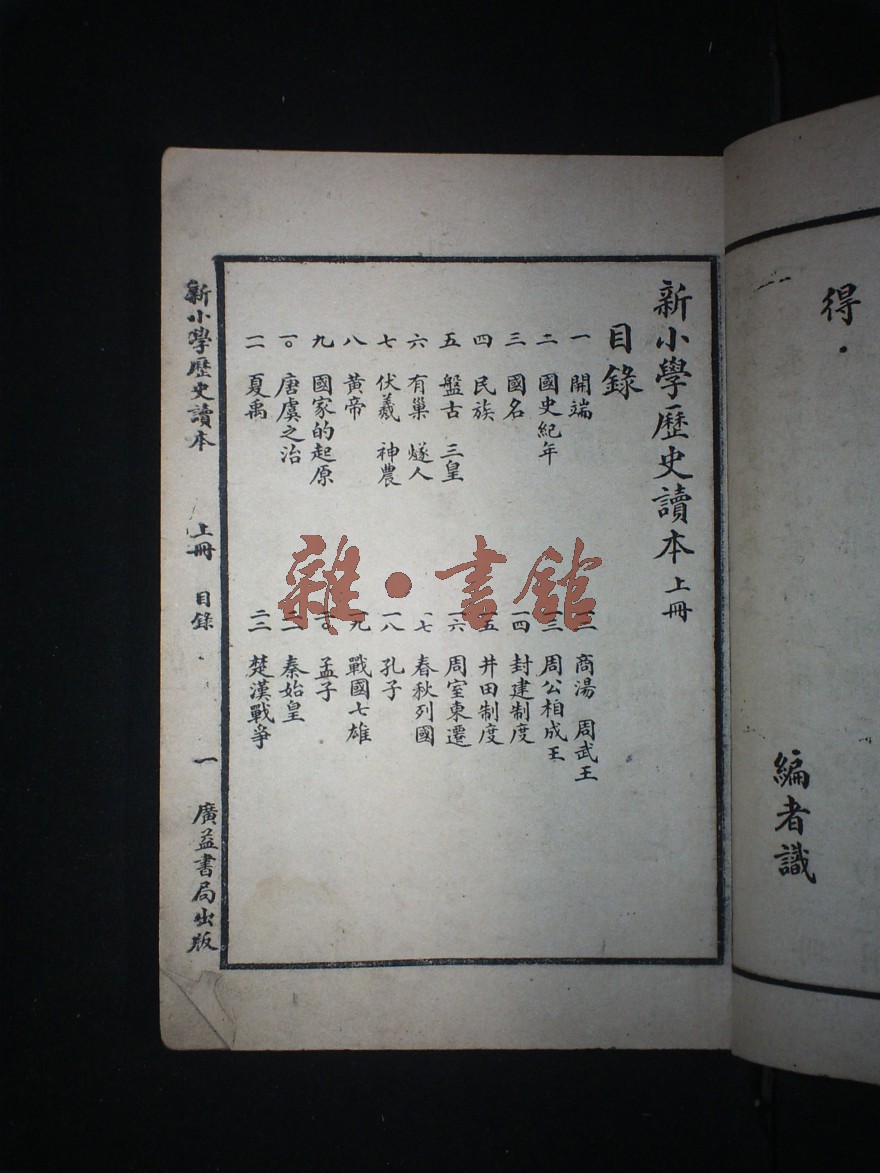 得．
編者識
新小學歷史讀本 上冊
目錄
一 開端
二 國史紀年
三 國名
四 民族
五 盤古 三皇
六 有巢 燧人
七 伏羲 神農
八 黃帝
九 國家的起原
一〇 唐虞之治
一一 夏禹
一二 商湯 周武王
一三 周公相成王
一四 封建制度
一五 井田制度
一六 周室東遷
一七 春秋列國
一八 孔子
一九 戰國七雄
二〇 孟子
二一 秦始皇
二二 楚漢戰爭
新小學歷史讀本 上冊 目錄 一 廣益書局出版
雜·書館